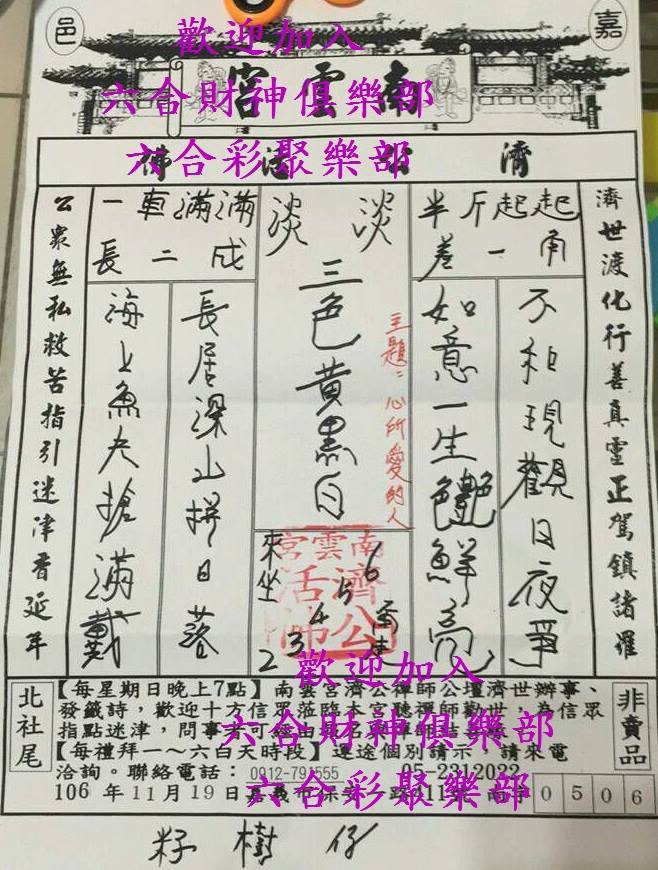 嘉
邑
南雲宮
歡迎加入
六合財神俱樂部
六合彩聚樂部
濟公活佛
濟世渡化行善真靈正駕鎮諸羅
半斤起起
差一角
不和現觀日夜爭
如意一生艷鮮亮
淡淡
三色黃黑白
主題：心所愛的人
一車滿滿
長二成
長居深山拼日落
海上魚夫搶滿戴
公眾無私救苦指引迷津香延年
南雲宮
濟公
活佛
來坐
6
5
4
3
2
歡迎加入
六合財神俱樂部
六合彩聚樂部
北社尾
非賣品
【每星期日晚上7點】南雲宮濟公禪師公壇濟世辦事、
發籤詩，歡迎十方信眾蒞臨本宮聽禪師勸世，為信眾
指點迷津，問事者可經由
【每禮拜一～六白天時段】運途個別請示，請來電
洽詢。聯絡電話：0912-791555 05-2312022
106 年 11 月 19 日 嘉義市保安一路
0506
籽樹仔